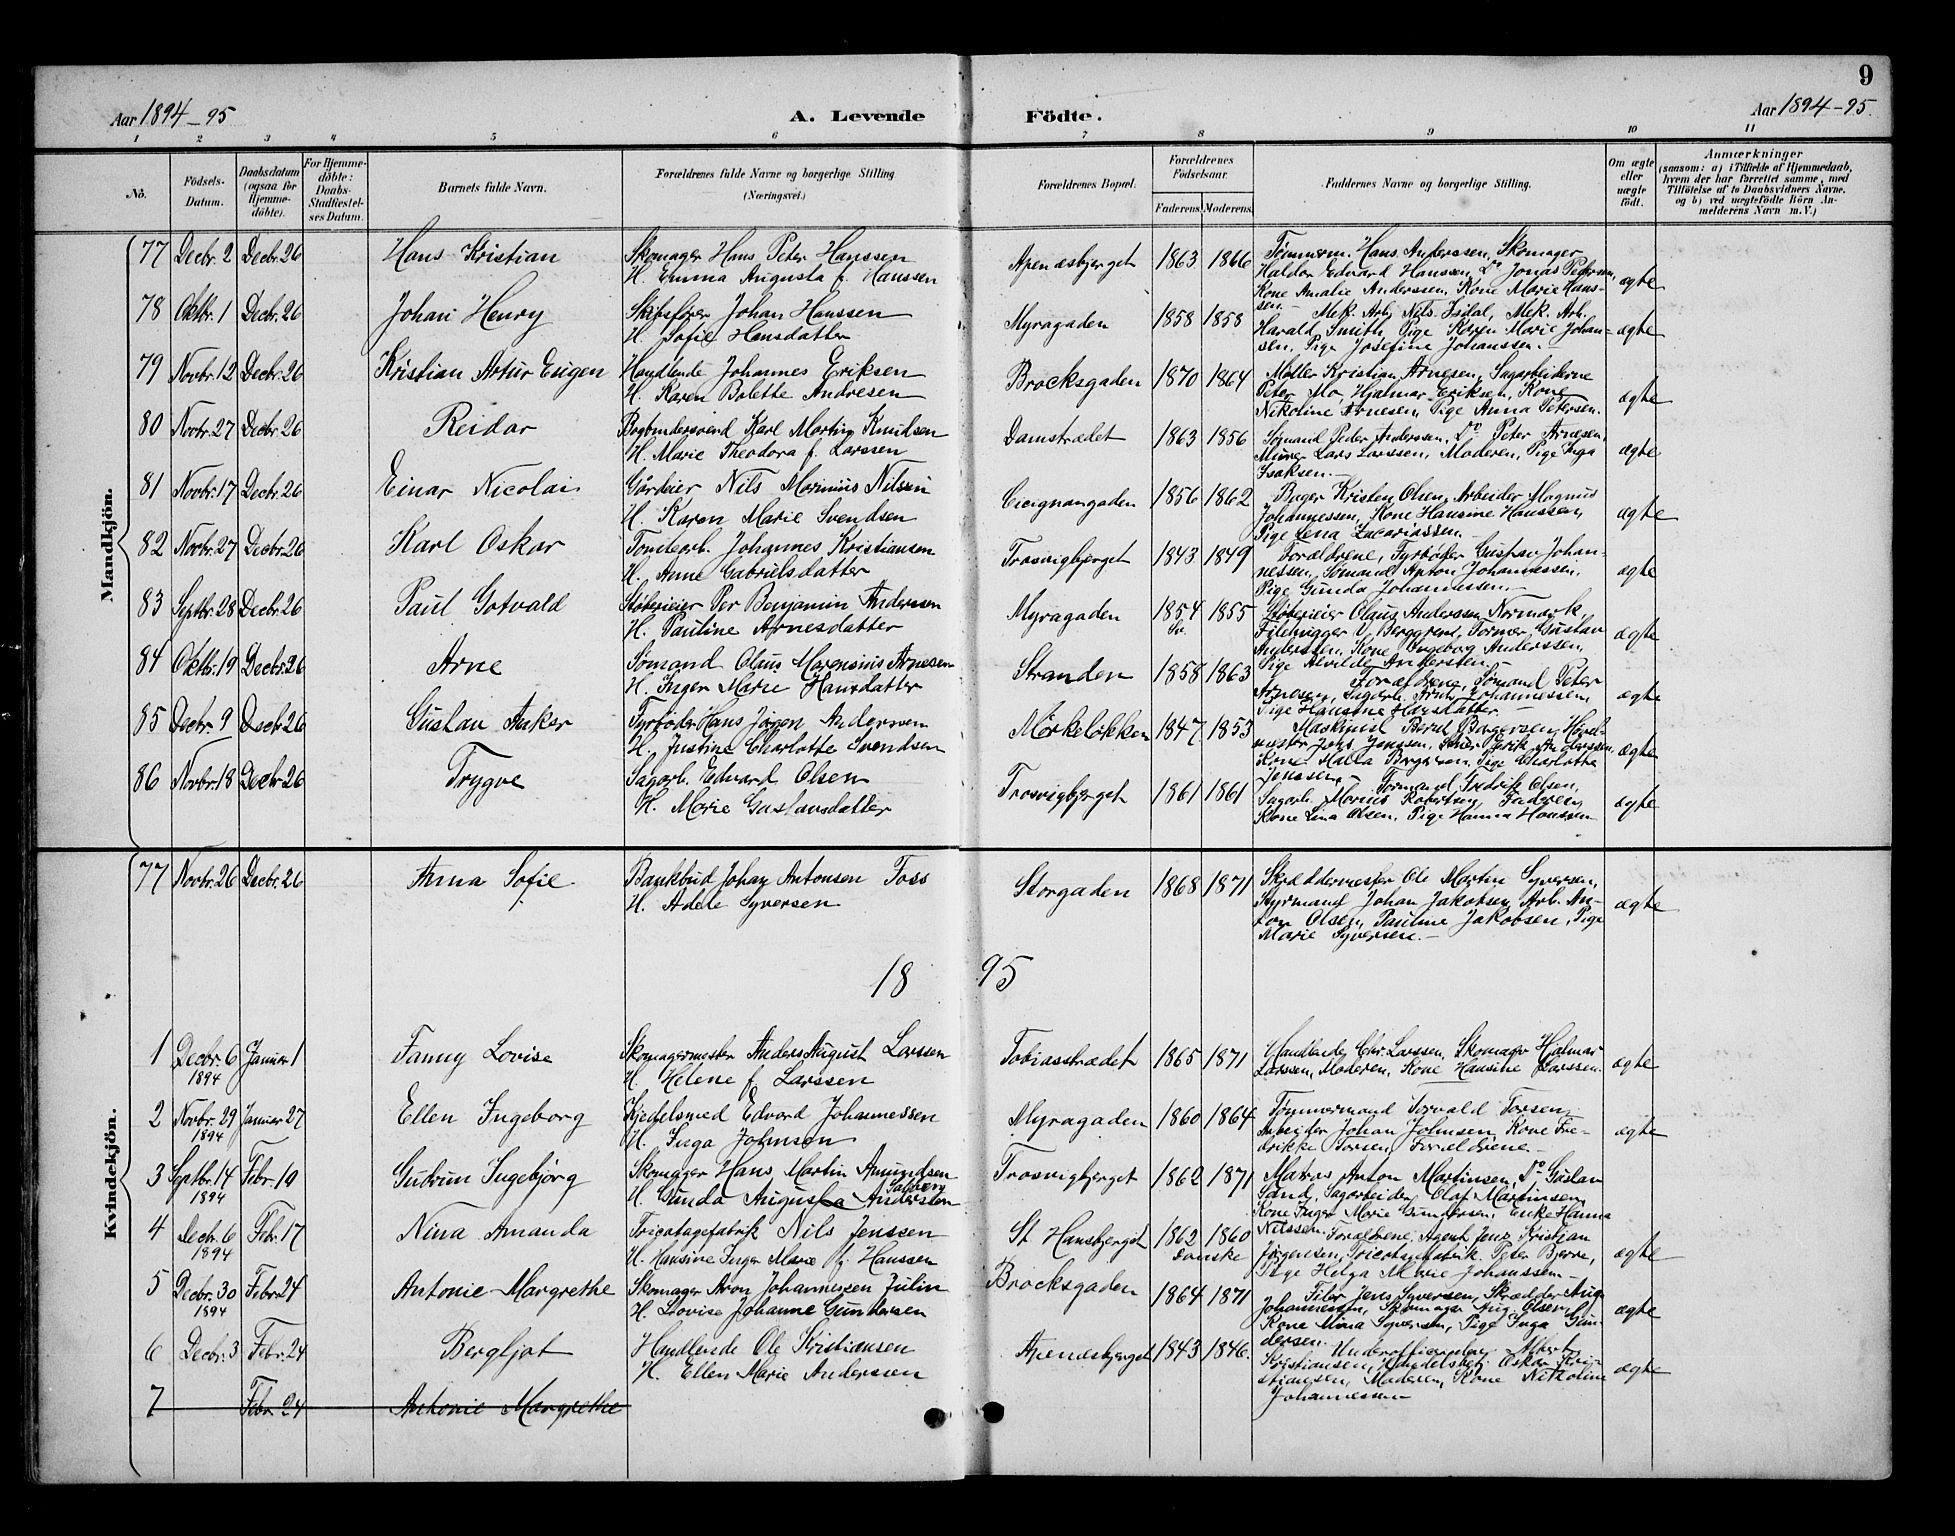 9
Aar 1894-95
A. Levende Födte.
Aar 1894-95.
1 2 3 4 5 6 7 8 9 10 11
No.
Födsels-Datum.
Daabsdatum (ogsaa for Hjemme-döbte).
For Hjemme-döbte: Daabs-Stadfæstel-ses Datum.
Barnets fulde Navn.
Forældrenes fulde Navne og borgerlige Stilling (Næringsvei.)
Forældrenes Bopæl.
Forældrenes Födselsaar.
Faderens. Moderens.
Faddernes Navne og borgerlige Stilling.
Om ægte eller uægte födt.
Anmærkninger
(saasom: a) i Tilfælde af Hjemmedaab,
hvem der har forrettet samme, med
Tilföielse af to Daabsvidners Navne.
og b) ved uægtefödte Börn An-
melderens Navn m.V.)
Mandkjön.
77 Decbr. 2 Decbr. 26 Hans Kristian Skomager Hans Peter Hanssen
H. Emma Augusta f. Hanssen
Apenæsbjerget 1863 1866 Tømmerm. Hans Anderssen, Skomager
Haldor Edvard Hanssen, Do Jonas Pedersen,
Kone Amalie Anderssen, Kone Marie Hans-
sen - ægte
78 Oktbr. 1 Decbr. 26 Johan Henry Skibsfører Johan Hanssen
H. Sofie Hansdatter
Myragaden 1858 1858 Mek. Arb. Nils Isdal, Mek. Arb.
Harald Smith, Pige Karen Marie Johan-
sen, Pige Josefine Johanssen. ægte
79 Novbr. 12 Decbr. 26 Kristian Artur Eugen Handlende Johannes Eriksen
H. Karen Bolette Andresen
Brocksgaden 1870 1864 Møller Kristian Arnesen, Sagarbeiderne
Peter Mo, Hjalmar Eriksen, Kone
Nikoline Arnesen, Pige Anna Petersen. ægte
80 Novbr. 27 Decbr. 26 Reidar Bogbindersvend Karl Martin Knudsen
H. Marie Theodora f. Larssen
Damstrædet 1863 1856 Sømand Peder Anderssen, Do Peter Arnesen,
Murer Lars Larssen, Moderen, Pige Inga
Isaksen. ægte
81 Novbr. 17 Decbr. 26 Einar Nicolai Gårdeier Nils Nilsen
H. Karen Marie Svendsen
Cicignongaden 1856 1862 Bager Kristen Olsen, Arbeider Magnus
Johannessen, Kone Hansine Hanssen,
Pige Lena Zacariassen. ægte
82 Novbr. 27 Decbr. 26 Karl Oskar Tomtearb. Johannes Kristiansen
H. Anne Gabrielsdatter
Trosvigbjerget 1843 1849 Forældrene, Fyrbøder Gustav Johan-
nessen, Sømand Anton Johannessen,
Pige Gunda Johannessen. ægte
83 Septbr. 28 Decbr. 26 Paul Gotvald Støberieier Per Benjamin Anderssen
H. Pauline Arnesdatter
Myragaden 1854 Sv. 1855 Støberieier Claus Anderssen Normark,
Filehugger V. Berggrend, Former Gustav
Andersten, Kone Ingeborg Anderssen,
Pige Alvilde Andersten. ægte
84 Oktbr. 19 Decbr. 26 Arne Sømand Olaus Marensius Arnesen
H. Inger Marie Hansdatter
Stranden 1858 1863 Forældrene, Sømand Peter
Arnesen, Sagarb. Johannessen,
Pige Hansine Hansdatter. ægte
85 Decbr. 9 Decbr. 26 Gustav Anker Fyrbøder Hans Jørgen Andersen
H. Justine Charlotte Svendsen
Mørkeløkken 1847 1853 Maskinist Bernt Børgersen, Høvel-
mester Johs. Jenssen, Erik Anderssen,
Kone Børgersen, Pige Charlotte
Jenssen. - ægte
86 Novbr. 18 Decbr. 26 Trygve Sagarb. Edvard Olsen
H. Marie Gustavsdatter
Trosvigbjerget 1861 1861 Formand Fredrik Olsen,
Sagarb. Morius Robertsen, Faderen,
Kone Lina Olsen, Pige Hanna Hanssen ægte
Kvindekjön.
77 Novbr. 26 Decbr. 26 Anna Sofie Bankbud Johan Antonsen Foss
H. Adele Syversen
Storgaden 1868 1871 Skræddermester Ole Martin Syversen,
Styrmand Johan Jakobsen, Arb. An-
ton Olsen, Pauline Jakobsen, Pige
Marie Syversen. - ægte
18 95
1 Decbr. 6 1894 Januar 1 Fanny Lovise Skomagermester Anders August Larssen
H. Helene f. Larssen
Tobiasstrædet 1865 1871 Handlende Chr. Larssen, Skomager Hjalmar
Larssen, Moderen, Kone Hansine Larssen. ægte
2 Novbr. 29 1894 Januar 27 Ellen Ingeborg Kjedelsmed Edvard Johannessen
H. Inga Johnsen
Myragaden 1860 1864 Tømmermand Torvald Torsen,
Arbeider Johan Johnsen, Kone Fre-
drikke Torsen, Forældrene. ægte
3 Septbr. 14 1894 Febr. 10 Gudrun Ingebjörg Skomager Hans Martin Amundsen
H. Gunda Augusta Andersten
Trosvigbjerget 1862 1871 Matros Anton Martinsen, Do Gustav
Sand, Sagarbeider Olaf Martinsen,
Kone Inger Marie Gundersen, Enke Hanna
Nilssen.
4 Decbr. 6 1894 Febr. 17 Nina Amanda Tricotagefabrik. Nils Jenssen
H. Hansine Inger Marie f. Hanssen
St. Hansbjerget 1862 1860 Danske Forældrene, Agent Jens Kristian
Jørgensen, Tricotagefabrik. Peter Bjerre,
Pige Helga Marie Johanssen. - ægte
5 Decbr. 30 1894 Febr. 24 Antonie Margrethe Skomager Aron Johannessen Julin
H. Lovise Johanne Gundersen
Brocksgaden 1864 1871 Filer Jens Syversen, Skrædder Aug.
Johannessen, Skomager Aug. Olsen,
Kone Mina Syversen, Pige Inga Gun-
dersen. ægte
6 Decbr. 3 Febr. 24 Bergljot Handlende Ole Kristiansen
H. Ellen Marie Anderssen
Apenæsbjerget 1843 1846. Underofficerselev Albert
Kristiansen, Handelsbetj. Oskar Kri-
stiansen, Moderen, Kone Nikoline
Johannessen ægte
7 Febr. 24 Antonie Margrethe